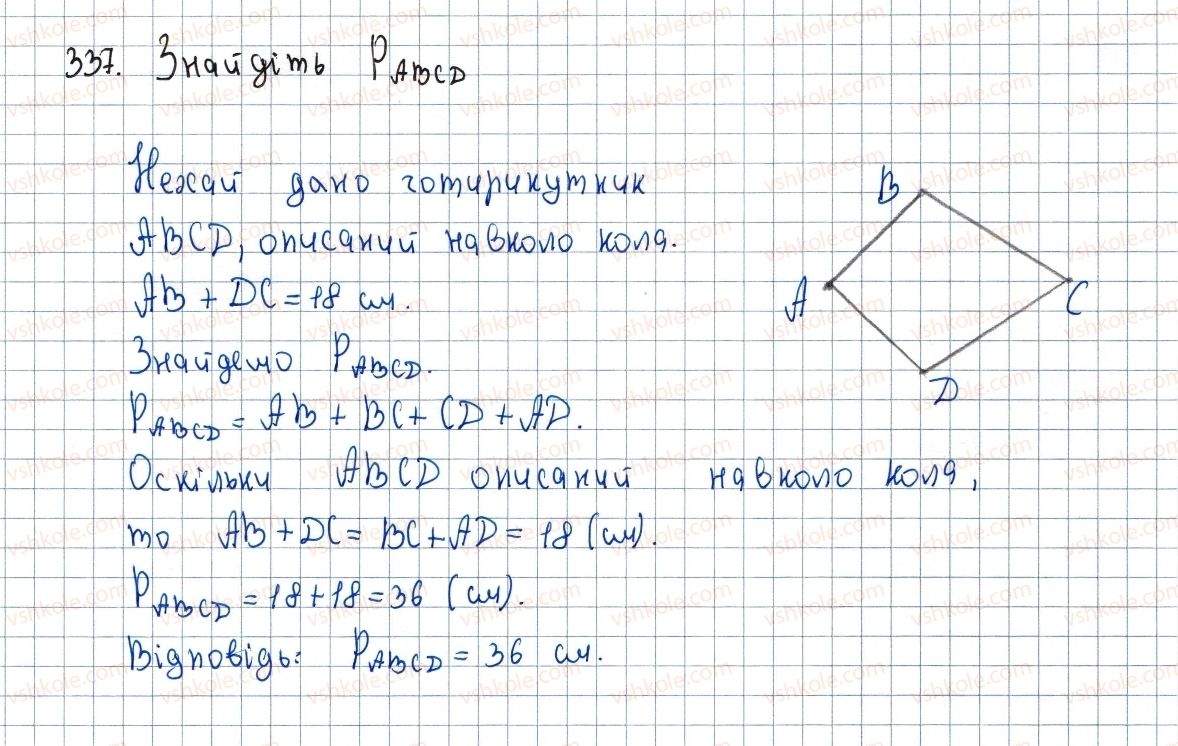 337. Знайдіть P ABCD
Нехай дано чотирикутник
ABCD, описаний навколо кола.
AB + DC = 18 см.
Знайдемо P ABCD.
P ABCD = AB + BC + CD + AD.
Оскільки ABCD описаний навколо кола,
то AB + DC = BC + AD = 18 (см).
P ABCD = 18 + 18 = 36 (см).
Відповідь: P ABCD = 36 см.
B
A
C
D
vshkole.com